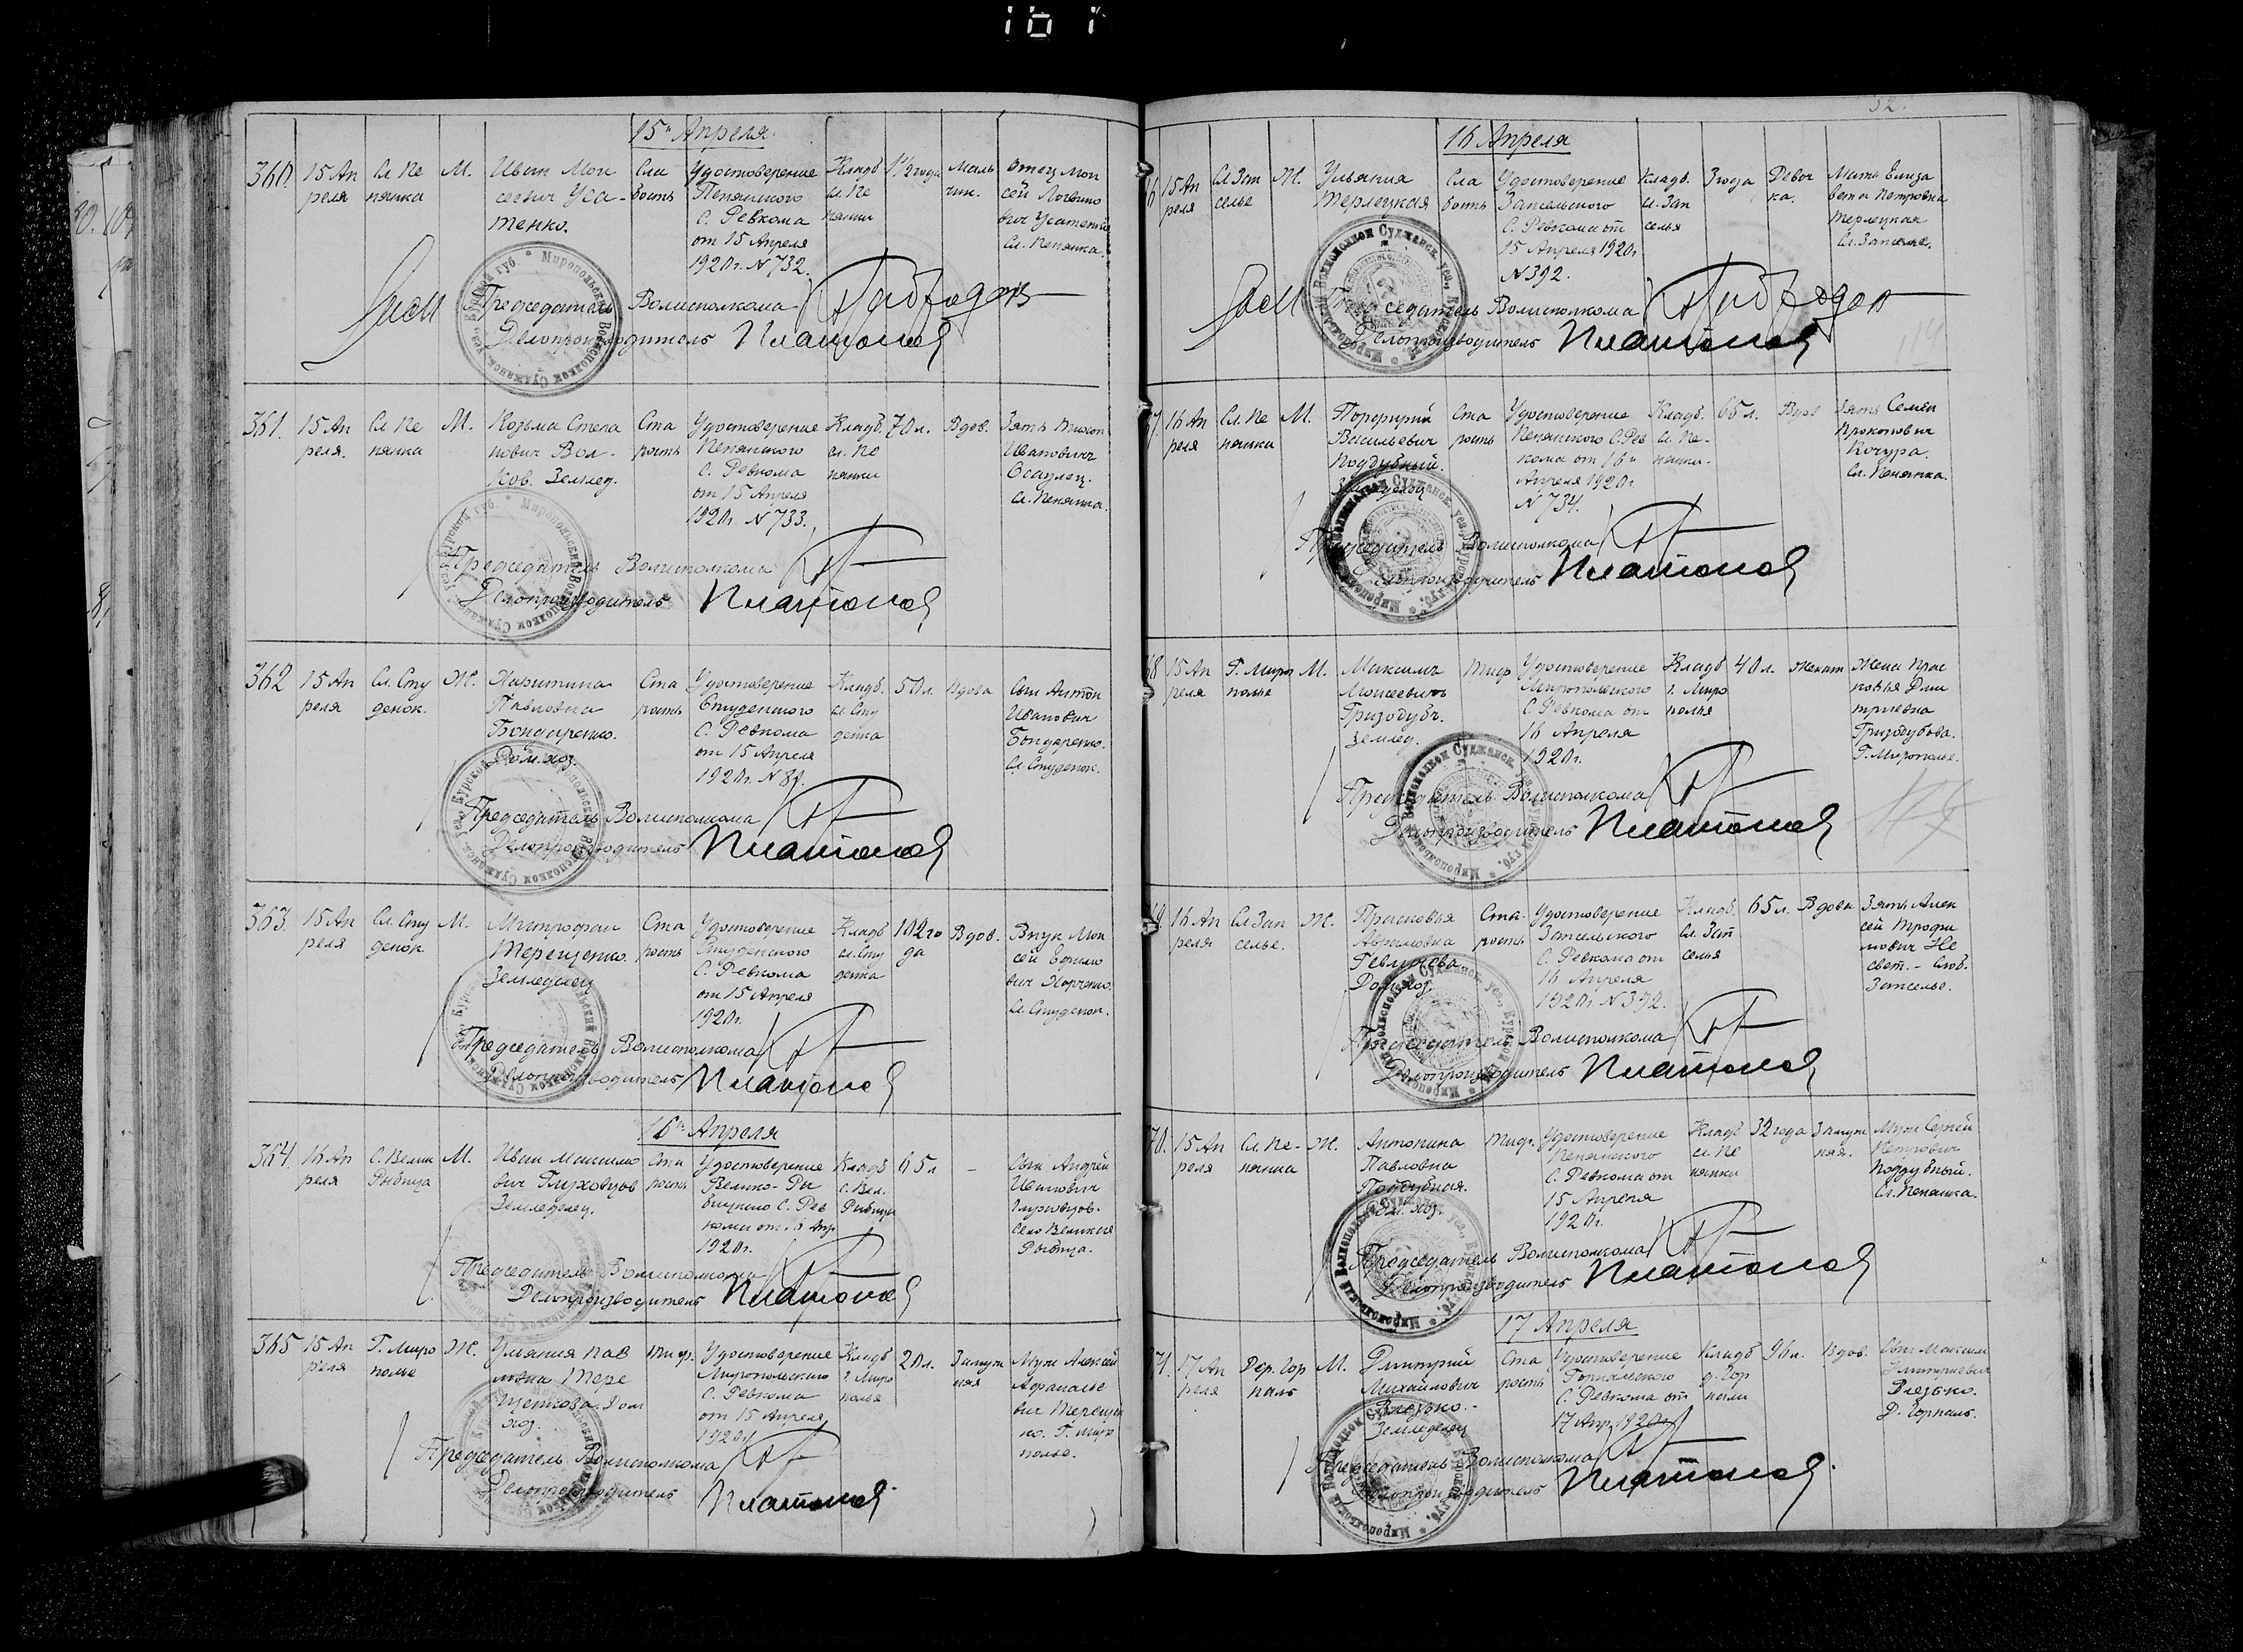 15го Апреля
360. 15 Ап
реля
Сл. Пе
нянка
М.
Иван Мои
сеевич Уса-
тенко.
Сла
бость
Удостоверение
Пенянского
С. Ревкома
от 15 Апреля
1920 г. N 732.
Кладб.
сл. Пе
нянки
1 1/2 года
Маль
чик.
Отец Мои
сей Логвино
вич Усатенко
Сл. Пенянка.
Председатель Волисполкома
Делопроизводитель Платонов
361. 15 Ап
реля.
Сл. Пе
нянка
М.
Козьма Степа
нович Вол-
ков. Землед.
Ста
рость
Удостоверение
Пенянского
С. Ревкома
от 15 Апреля
1920 г. N 733.
Кладб.
сл. Пе
нянки
70 л.
Вдов.
Зять
Иванович
Осаулец.
Сл. Пенянка.
Председатель Волисполкома
Делопроизводитель Платонов
362 15 Ап
реля
Сл. Сту
денок.
Ж.
Харитина
Павловна
Бондаренко.
Дом. хоз.
Ста
рость
Удостоверение
Студенского
С. Ревкома
от 15 Апреля
1920 г.
Кладб.
сл. Сту
денка
50 л.
Вдова
Сын Антон
Иванович
Бондаренко.
Сл. Студенок.
Председатель Волисполкома
Делопроизводитель Платонов
363. 15 Ап
реля
Сл. Сту
денок.
М.
Митрофан
Терещенко.
Земледелец
Ста
рость
Удостоверение
Студенского
С. Ревкома
от 15 Апреля
1920 г.
Кладб
сл. Сту
денка
102 го
да
Вдов.
Внук Мои
сей Ефимо
вич Харченко.
Сл. Студенок.
Председатель Волисполкома
Делопроизводитель Платонов
16го Апреля
364. 16 Ап
реля
С. Велик
Рыбица
М.
Иван Максимо
вич Глуховцов
Земледелец.
Ста
рость
Удостоверение
Велико-Ры
бицкого С. Рев
кома от Апр.
1920 г.
Кладб
с. Вел.
Рыбицы
65 л
-
Сын Андрей
Иванович
Глуховцов.
Село Великая
Рыбица.
Председатель Волисполкома
Делопроизводитель Платонов
365 15 Ап
реля
Г. Миро
полье
Ж.
Ульяния Пав
ловна Тере
щенкова. Дом
хоз.
Тиф.
Удостоверение
Миропольского
С. Ревкома
от 15 Апреля
1920 г.
Кладб
г. Миро
полья
20 л.
Замуж
няя
Муж Алексей
Афанасье
вич Терещен
ко. Г. Миро
полье.
Председатель Волисполкома
Делопроизводитель Платонов
52.
16 Апреля
6 15 Ап
реля
Сл. Зап
селье
Ж.
Ульяния
Терлецкая
Сла
бость
Удостоверение
Запсельского
С. Ревкома от
15 Апреля 1920 г
N 392.
Кладб.
сл. Зап
селья
3 года
Девоч
ка.
Мать Елиза
вета Петровна
Терлецкая
Сл. Запселье.
Председатель Волисполкома
Делопроизводитель Платонов
7. 16 Ап
реля
Сл. Пе
нянка
М.
Порфирий
Васильевич
Поддубный.
Земледелец
Ста
рость
Удостоверение
Пенянского С. Рев
кома от 16го
Апреля 1920 г.
N 734.
Кладб.
сл. Пе-
нянки.
65 л.
Вдов
Зять Семён
Прокопович
Кочура.
Сл. Пенянка.
Председатель Волисполкома
Делопроизводитель Платонов
68 15 Ап
реля
Г. Миро
полье
М.
Максимъ
Моисеевичъ
Гризодубъ.
Землед.
Тиф
Удостоверение
Миропольского
С. Ревкома от
16 Апреля
1920 г.
Кладб
г. Миро
полья
40 л.
Женат
Жена Прас
ковья Дми
триевна
Гризодубова.
Г. Мирополье.
Председатель Волисполкома
Делопроизводитель Платонов
9. 16 Ап
реля
Сл. Зап
селье.
Ж.
Прасковья
Авраамовна
Дом. хоз.
Ста-
рость
Удостоверение
Запсельского
С. Ревкома от
16 Апреля
1920 г. N 392.
Кладб.
сл. Зап
селья
65 л.
Вдова
Зять Алек
сей Трофи
мович Не
свет. - Слоб.
Запселье.
Председатель Волисполкома
Делопроизводитель Платонов
70. 15 Ап
реля
Сл. Пе-
нянка
Ж.
Антонина
Павловна
Поддубная.
Дом. хоз.
Тиф.
Удостоверение
Пенянского
С. Ревкома от
15 Апреля
1920 г.
Кладб
сл. Пе
нянки
32 года
Замуж
няя.
Муж Сергей
Петрович
Поддубный.
Сл. Пенянка.
Председатель Волисполкома
Делопроизводитель Платонов
17 Апреля
71. 17 Ап
реля
Дер. Гор
наль
М.
Дмитрий
Михайлович
Земледелец
Ста
рость
Удостоверение
Горнальского
С. Ревкома от
17 Апр. 1920 г.
Кладб
д. Гор
нали
96 л.
Вдов.
Сын Максим
Дмитриевич
Д. Горналь.
Председатель Волисполкома
Делопроизводитель Платонов